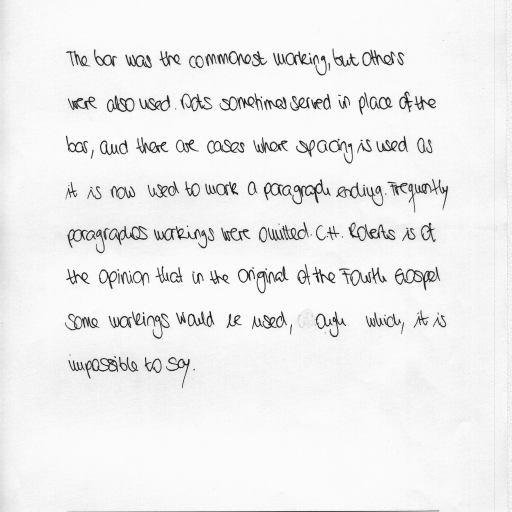 The bar was the commonest working, but others
were also used. Dots sometimes served in place of the
bar, and there are cases where spacing is used as
it is now used to work a paragraph ending. Frequently
paragraphos workings were omitted. C.H. Roberts is of
the opinion that in the original of the Fourth Gospel
some workings would be used, which, it is
impossible to say.